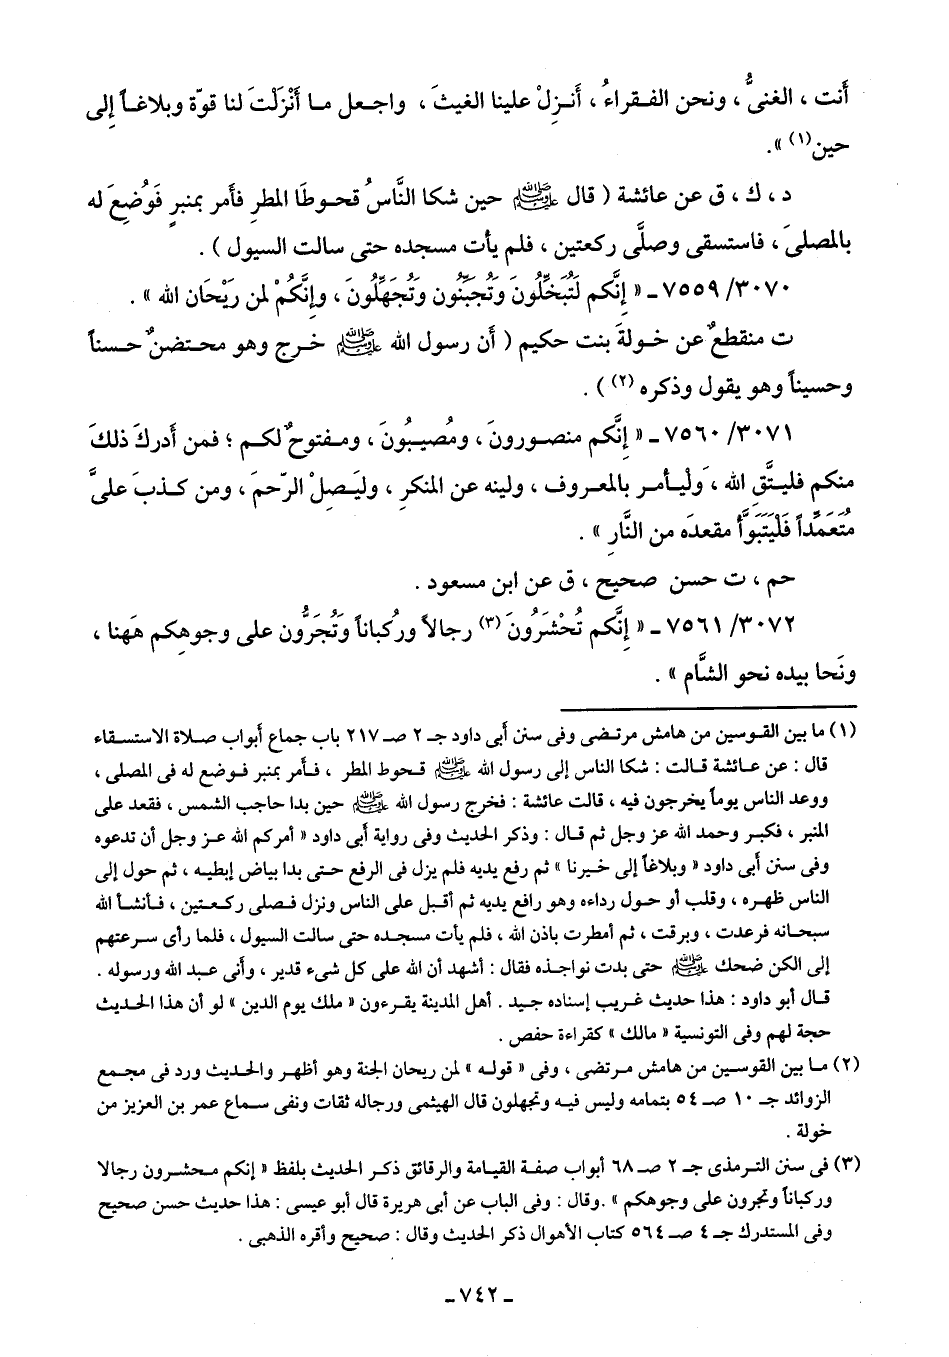 أَنت ، الغنىُّ ، ونحن الفـقراءُ ، أَنـزِلْ علينا الغيثَ ، واجـعل مـا أَنْزَلْتَ لنا قوّة وبلاغـاً إِلى
حين(١) » .
د ، ك ، ق عن عائشة ( قال ﷺ حين شكا النَّاسُ قحـوطَا المطرِ فأمر بمنبرٍ فَوُضِعَ له
بالمصلىَ ، فاستسقى وصلَّى ركعتين ، فلم يأت مسجده حتى سالت السيول ) .
٧٥٥٩/٣٠٧٠ ـ « إِنَّكم لَتُبَخِّلُونَ وَتُجَبِّنُون وَتُجَهِّلُونَ ، وإِنَّكُمْ لمن رَيْحَان الله » .
ت منقطعٌ عن خـولةَ بنت حكيم ( أن رسول الله ﷺ خـرج وهو محـتضنٌ حـسناً
وحسيناً وهو يقول وذكره (٢) ) .
٧٥٦٠/٣٠٧١ ـ « إِنَّكم منصـورونَ ، ومُصيـبُونَ ، ومـفتوحٌ لكـم ؛ فمن أَدركَ ذلكَ
منكم فليتَّقِ الله ، وَلْيأمـر بالمعـروف ، ولينه عن المنكرِ ، وليَـصِلْ الرّحمَ ، ومن كـذبَ علىَّ
مُتَعَمِّداً فَلْيَتَبَوَّأْ مقعدَه من النَّارِ » .
حم ، ت حسن صحيح ، ق عن ابن مسعود .
٧٥٦١/٣٠٧٢ ـ « إِنَّكم تُحْشَرُونَ (٣) رجالاً وركُباناً وَتُجَرُّون على وجوهِكم هَهنا ،
ونَحا بيده نحو الشَّام » .
(١) ما بين القـوسين من هامش مرتـضى وفى سنن أبى داود جـ ٢ صـ ٢١٧ باب جماع أبواب صـلاة الاستسـقاء
قال : عن عـائشة قـالت : شكا الناس إلى رسول الله ﷺ قـحوط المطر ، فـأمر بمنبر فـوضع له فى المصلى ،
ووعد الناس يوماً يخرجون فيه ، قالت عائشة : فخرج رسول الله ﷺ حين بدا حاجب الشمس ، فقعد على
المنبر ، فكبـر وحمد الله عز وجل ثم قـال : وذكر الحديث وفى رواية أبى داود « أمركم الله عـز وجل أن تدعوه
وفى سنن أبى داود « وبلاغاً إلى خيرنا » ثم رفع يديه فلم يزل فى الرفع حتـى بدا بياض إبطيـه ، ثم حول إلى
الناس ظهـره ، وقلب أو حـول رداءه وهو رافع يديه ثم أقبل على الناس ونزل فـصلى ركـعتين ، فـأنشـأ الله
سبحانه فرعدت ، وبرقت ، ثم أمطرت باذن الله ، فلم يأت مسجده حتى سالت السيول ، فلما رأى سرعتهم
إلى الكن ضحك ﷺ حتى بدت نواجـذه فقال : أشهد أن الله على كل شىء قدير ، وأنى عبـد الله ورسوله .
قـال أبو داود : هذا حديث غريب إسناده جـيد . أهل المدينة يقـرءون « ملك يوم الدين » لو أن هذا الحـديث
حجة لهم وفى التونسية « مالك » كقراءة حفص .
(٢) مـا بين القوسين من هامش مرتضى ، وفى « قولـه » لمن ريحان الجنة وهو أظهـر والحديث ورد فى مجـمع
الزوائد جـ ١٠ صـ ٥٤ بتمامه وليس فيه وتجهلون قال الهيثمى ورجاله ثقات ونفى سماع عمر بن العزيز من
خولة .
(٣) فى سنن التـرمذى جـ ٢ صـ ٦٨ أبواب صفـة القيامة والرقائق ذكـر الحديث بلفظ « إنكم محـشرون رجالا
وركباناً وتجرون على وجوهكم » .وقال : وفى الباب عن أبى هريرة قال أبو عيسى : هذا حديث حسن صحيح
وفى المستدرك جـ ٤ صـ ٥٦٤ كتاب الأهوال ذكر الحديث وقال : صحيح وأقره الذهبى .
ـ ٧٤٢ ـ